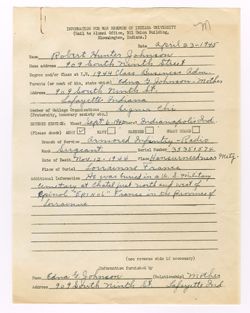 INFORMATION FOR WAR RECORDS OF INDIANA UNIVERSITY
(Mail to Alumni Office, 201 Union Building,
Bloomington, Indiana.)
Date, April 23-1945
Name Robert Hunter Johnson
Home Address 909 South Ninth Street
Degree and/or class at I.U. 1944 Class Business Adm.
Parents (or next of kin, state which) Edna G Johnson - Mother
909 South Ninth St.
Lafayette Indiana
Member of College Organizations Sigma Chi
(Fraternity, honorary society etc.)
Indianapolis Ind.
(Please check) ARMY NAVY
Branch of Service Armored Infantry - Radio
Rank Sergeant Serial Number
Date of Nov. 12 - 1944 Place
Lorrainne France
Additional Information He was buried in a U.S Military
Cemetery at Chatel just north and west of
Epinol "EPINAL" France in the Province of
Lorrainne
(use reverse side if necessary)
Information furnished by
Name Edna G Johnson (Relationship) Mother
Address 909 South Ninth St. Lafayette Ind